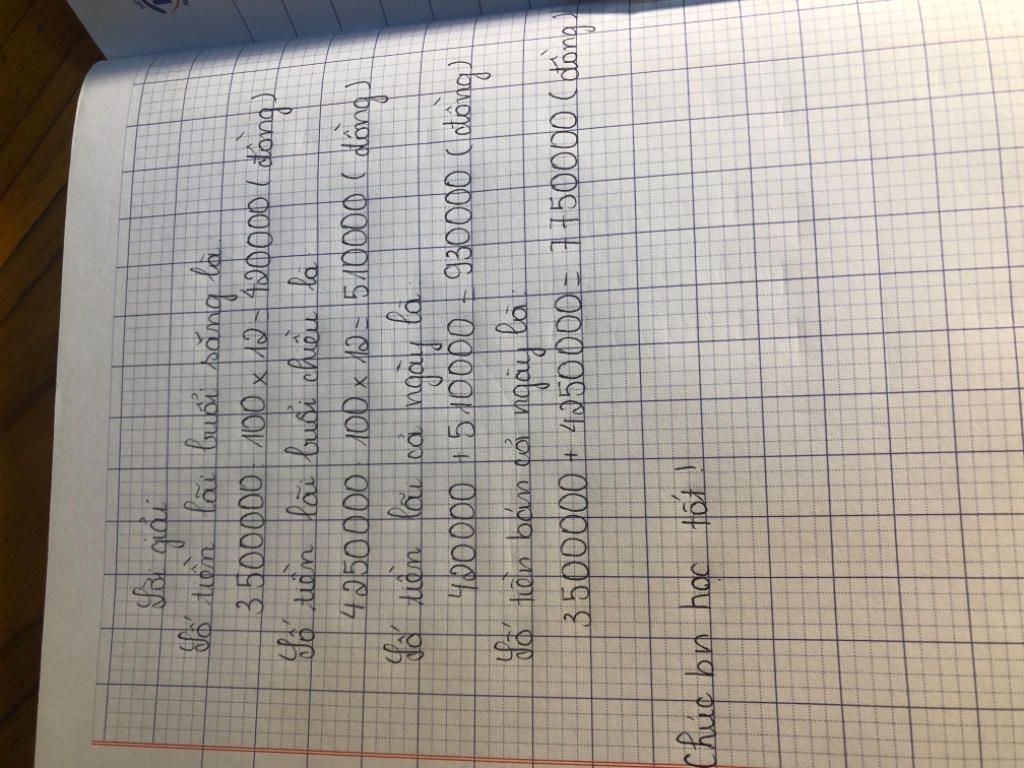 Lời giải
Số tiền lãi buổi sáng là
3500000 : 100 x 12 = 420000 ( đồng)
Số tiền lãi buổi chiều là
4250000 : 100 x 12 = 510000 ( đồng)
Số tiền lãi cả ngày là
420000 + 510000 = 930000 ( đồng)
Số tiền bán cả ngày là
3500000 + 4250000 = 7750000 ( đồng)
Chúc bn học tốt !